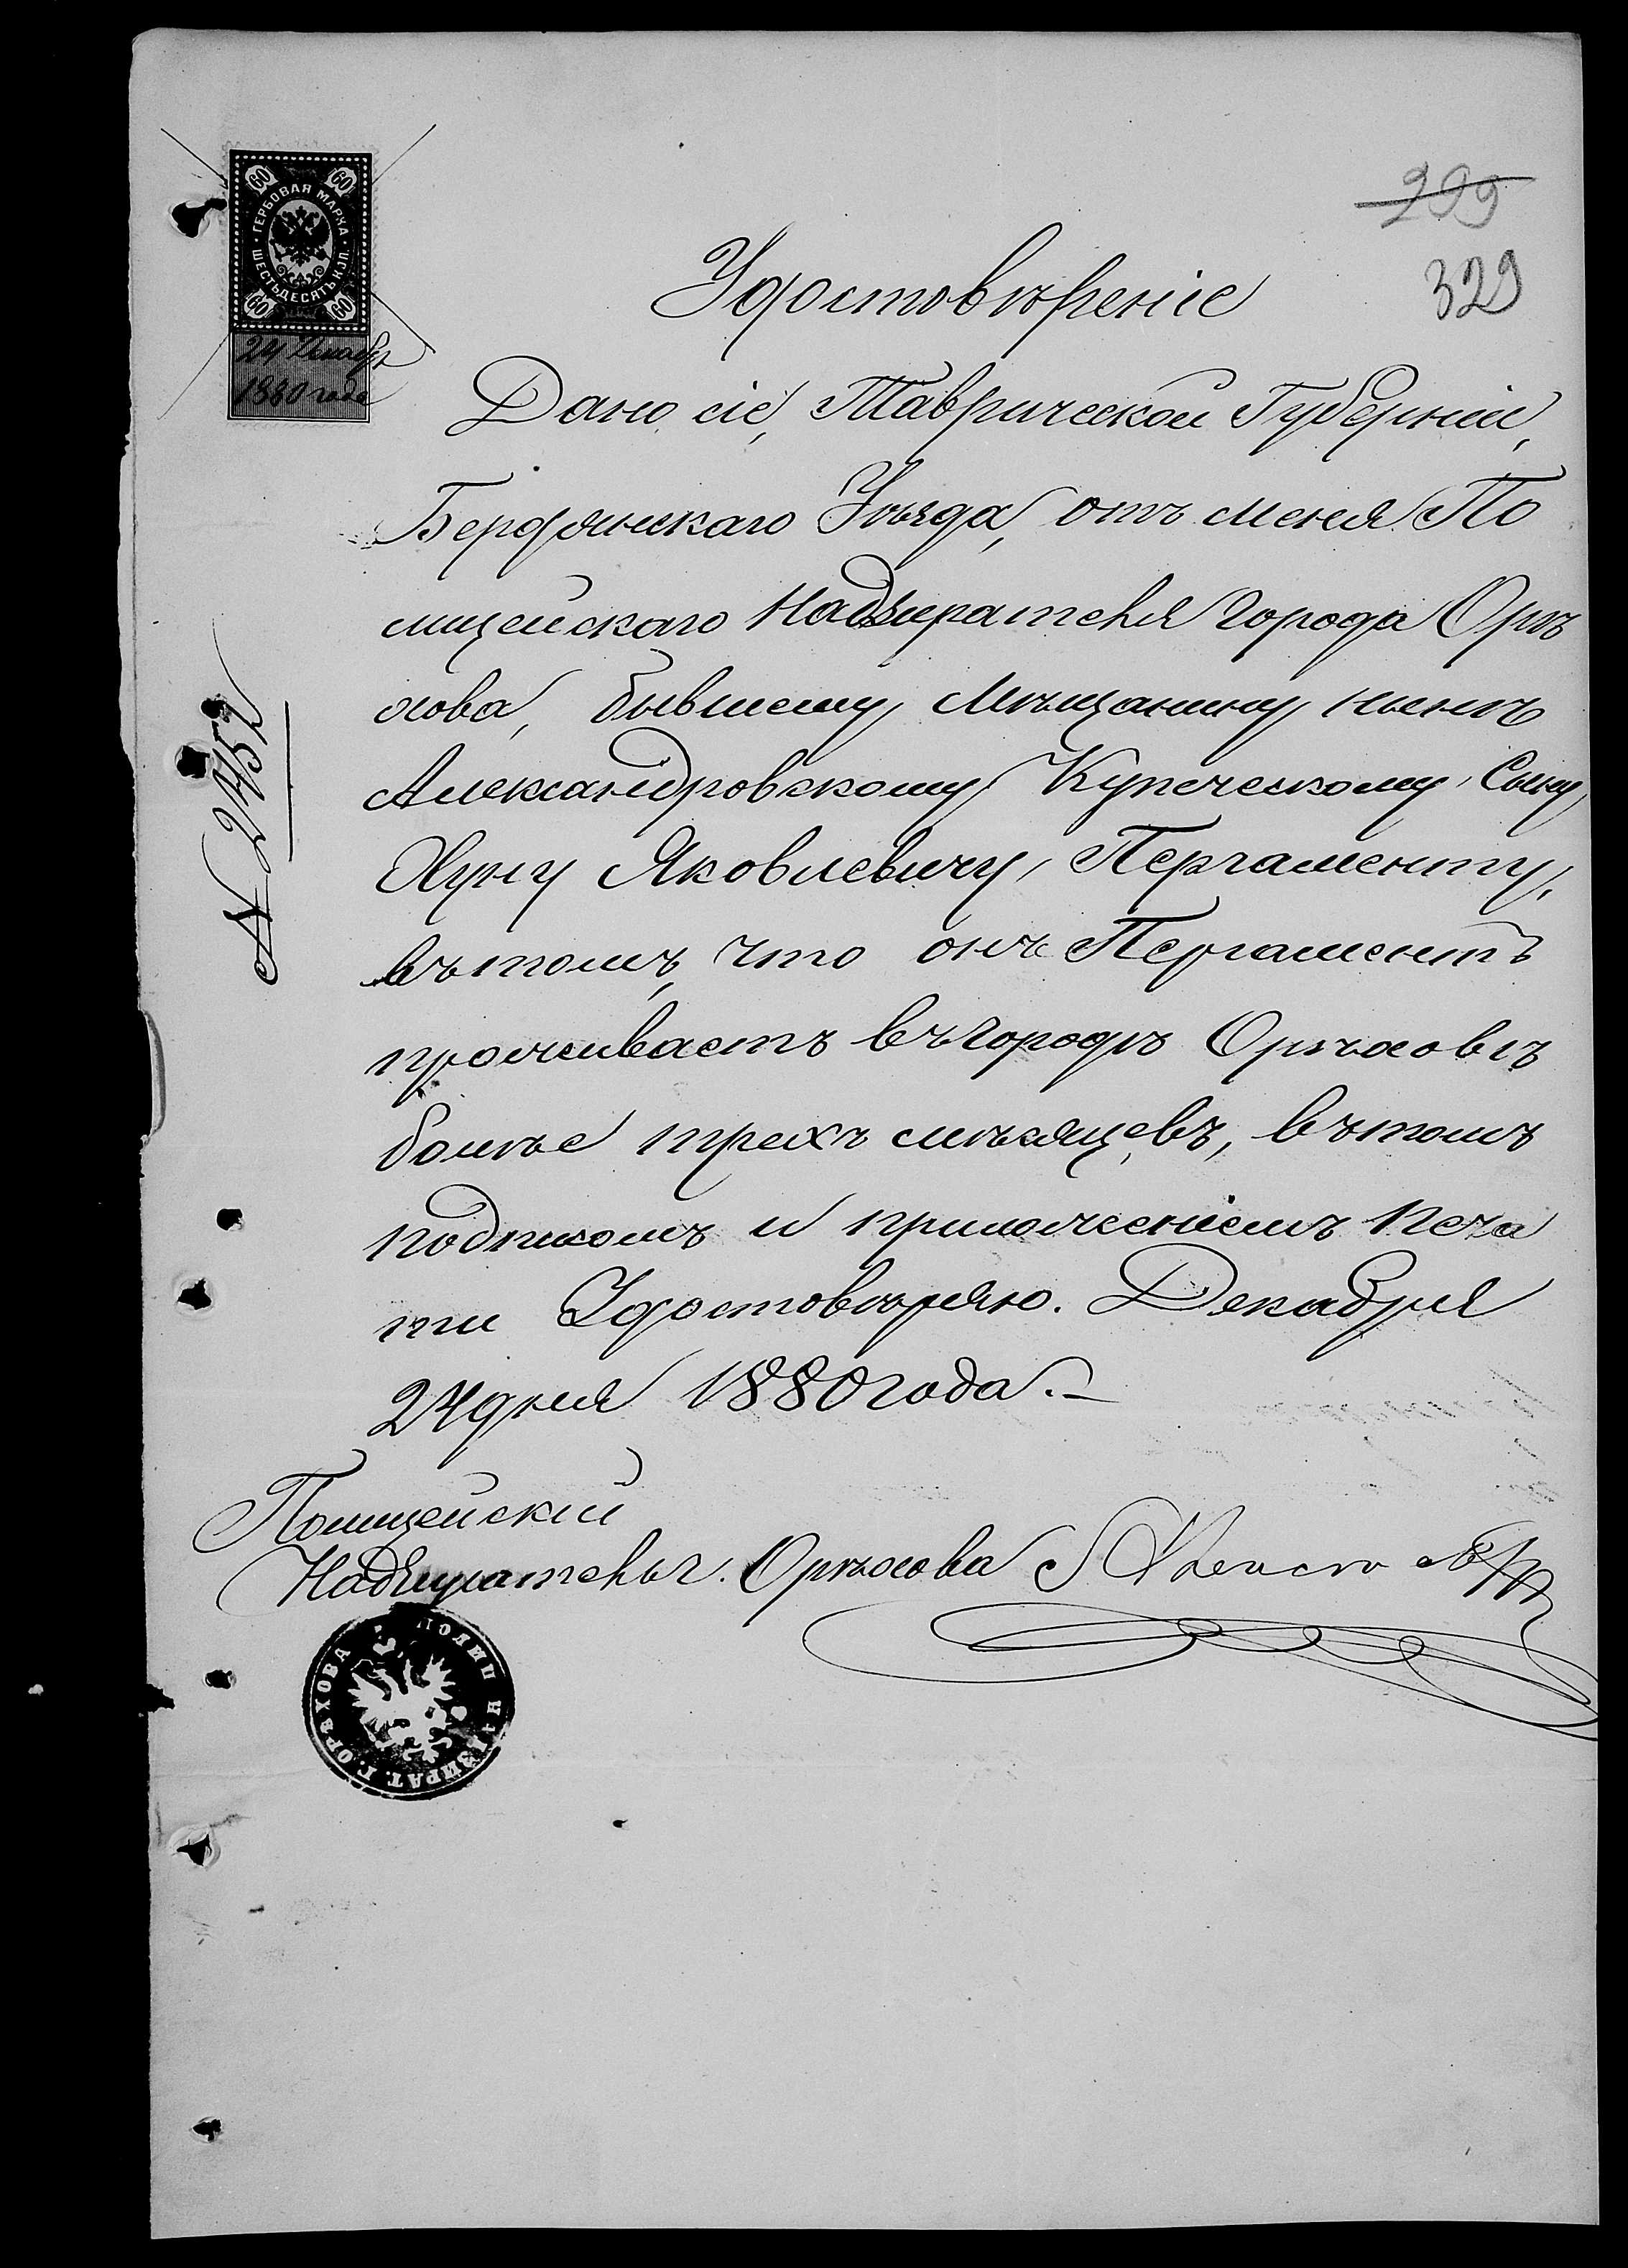 299
329
60 60
ГЕРБОВАЯ МАРКА
ШЕСТЬДЕСЯТЪ КОП.
60 60
24 Декабр
1880 года
Удостовѣреніе
Дано сіе, Таврической Губерніи,
Бердянскаго Уѣзда, отъ меня По
лицейскаго Надзирателя города Орѣ
хова, бывшему Мѣщанину нынѣ
Александровскому Купеческому Сыну,
Хуну Яковлевичу Пергаменту,
въ томъ, что онъ Пергаментъ
проживаетъ въ городѣ Орѣховѣ
болѣе трехъ мѣсяцевъ, въ томъ
подписомъ и приложеніемъ печа
ти Удостовѣряю. Декабря
24 дня 1880 года.—
№ 2452
Полицейскій
Надзиратель г. Орѣхова
ПОЛИЦ НАДЗИРАТ. Г. ОРѢХОВА